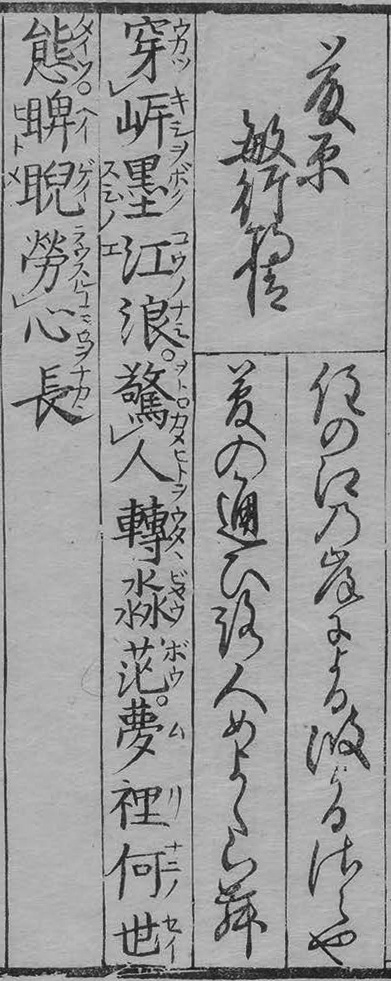 藤原
敏行朝臣
住の江乃岸による波よるさへや
夢の通ひ路人めよくら舞
穿岓墨江浪。驚人轉淼茫。夢裡何世
態。睥睨勞心長